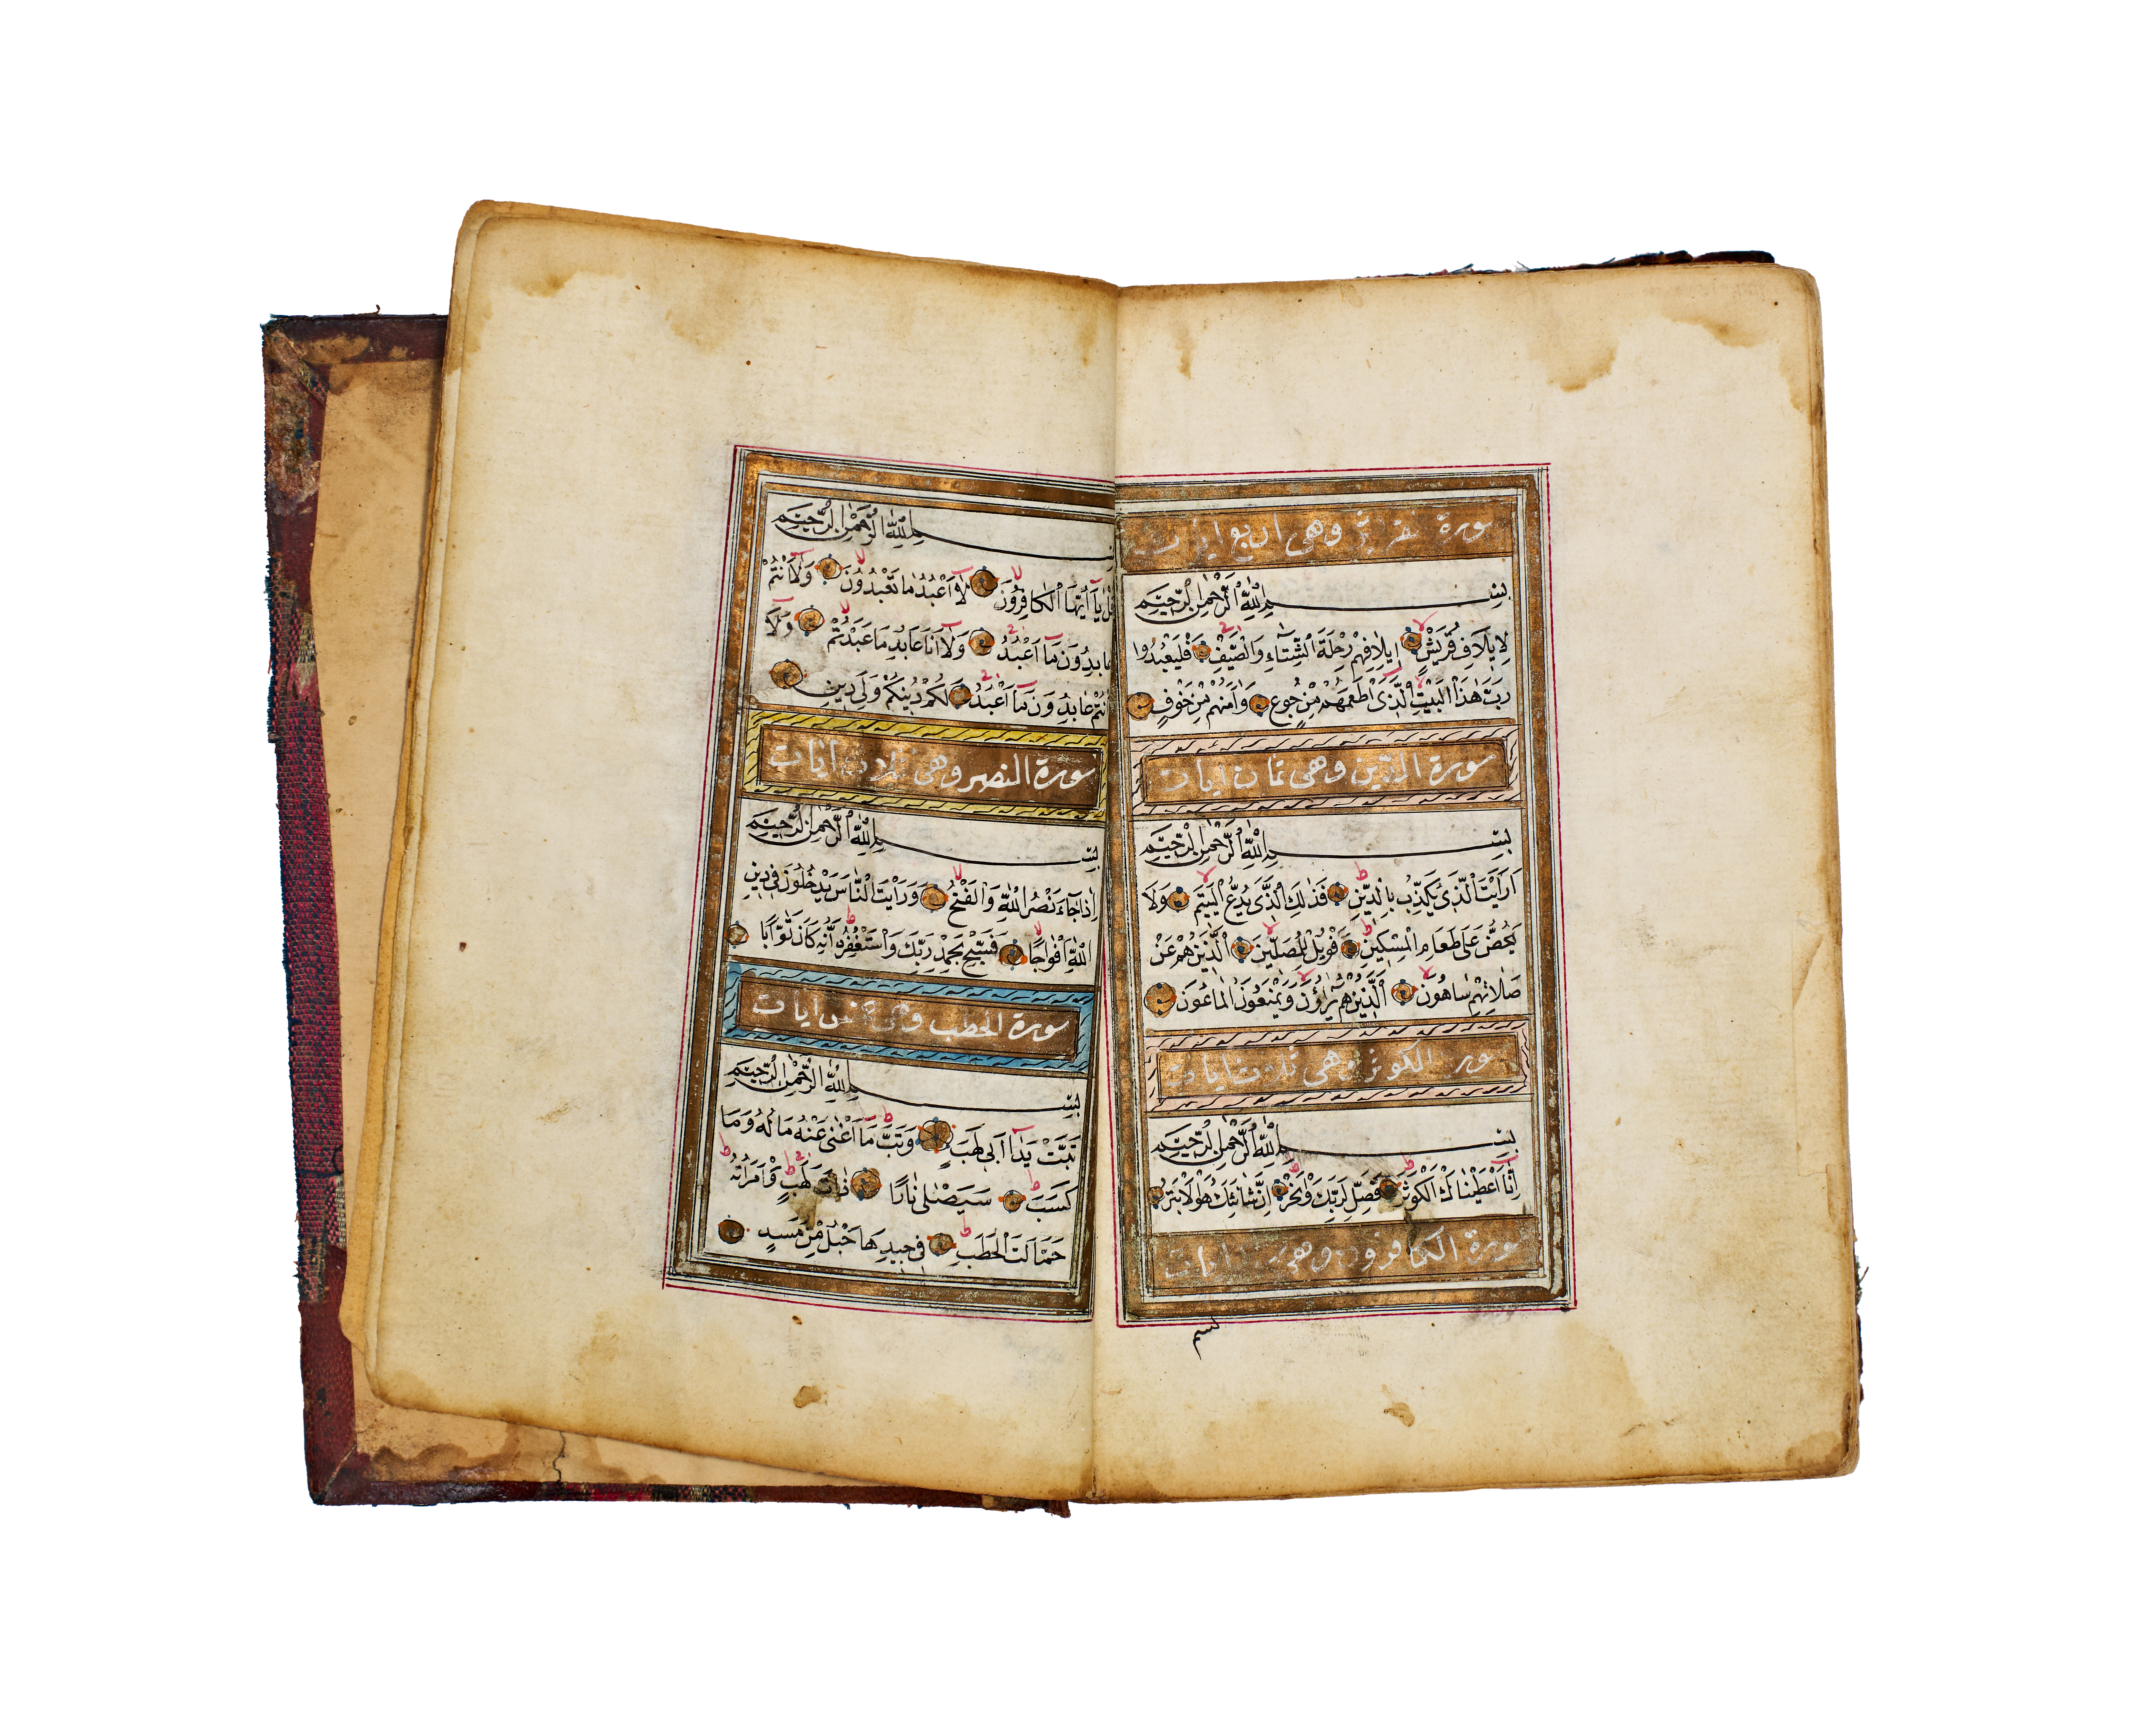 سورة قريش وهى اربع ايات
بِسْمِ اللّٰهِ الرَّحْمٰنِ الرَّحِيمِ
لِإِيلَافِ قُرَيْشٍ إِيلَافِهِمْ رِحْلَةَ الشِّتَاءِ وَالصَّيْفِ فَلْيَعْبُدُوا
رَبَّ هٰذَا الْبَيْتِ الَّذِى اَطْعَمَهُمْ مِنْ جُوعٍ وَاٰمَنَهُمْ مِنْ خَوْفٍ
سورة الدين وهى ثمان ايات
بِسْمِ اللّٰهِ الرَّحْمٰنِ الرَّحِيمِ
اَرَاَيْتَ الَّذِى يُكَذِّبُ بِالدِّينِ فَذٰلِكَ الَّذِى يَدُعُّ الْيَتِيمَ وَلَا
يَحُضُّ عَلَى طَعَامِ الْمِسْكِينِ فَوَيْلٌ لِلْمُصَلِّينَ الَّذِينَ هُمْ عَنْ
صَلَاتِهِمْ سَاهُونَ اَلَّذِينَ هُمْ يُرَاؤُنَ وَيَمْنَعُونَ الْمَاعُونَ
سورة الكوثر وهى ثلاث ايات
بِسْمِ اللّٰهِ الرَّحْمٰنِ الرَّحِيمِ
اِنَّا اَعْطَيْنَاكَ الْكَوْثَرَ فَصَلِّ لِرَبِّكَ وَانْحَرْ اِنَّ شَانِئَكَ هُوَ الْاَبْتَرُ
سورة الكافرون وهى ايات
بسم
بِسْمِ اللّٰهِ الرَّحْمٰنِ الرَّحِيمِ
قُلْ يَا اَيُّهَا الْكَافِرُونَ لَا اَعْبُدُ مَا تَعْبُدُونَ وَلَا اَنْتُمْ
عَابِدُونَ مَا اَعْبُدُ وَلَا اَنَا عَابِدٌ مَا عَبَدْتُمْ وَلَا
اَنْتُمْ عَابِدُونَ مَا اَعْبُدُ لَكُمْ دِينُكُمْ وَلِىَ دِينِ
سورة النصر وهى ثلاث ايات
بِسْمِ اللّٰهِ الرَّحْمٰنِ الرَّحِيمِ
اِذَا جَاءَ نَصْرُ اللّٰهِ وَالْفَتْحُ وَرَاَيْتَ النَّاسَ يَدْخُلُونَ فِى دِينِ
اللّٰهِ اَفْوَاجًا فَسَبِّحْ بِحَمْدِ رَبِّكَ وَاسْتَغْفِرْهُ اِنَّهُ كَانَ تَوَّابًا
سورة الحطب وهى خمس ايات
بِسْمِ اللّٰهِ الرَّحْمٰنِ الرَّحِيمِ
تَبَّتْ يَدَا اَبِى لَهَبٍ وَتَبَّ مَا اَغْنٰى عَنْهُ مَالُهُ وَمَا
كَسَبَ سَيَصْلٰى نَارًا ذَاتَ لَهَبٍ وَامْرَاَتُهُ
حَمَّالَتَ الْحَطَبِ فِى جِيدِهَا حَبْلٌ مِنْ مَسَدٍ